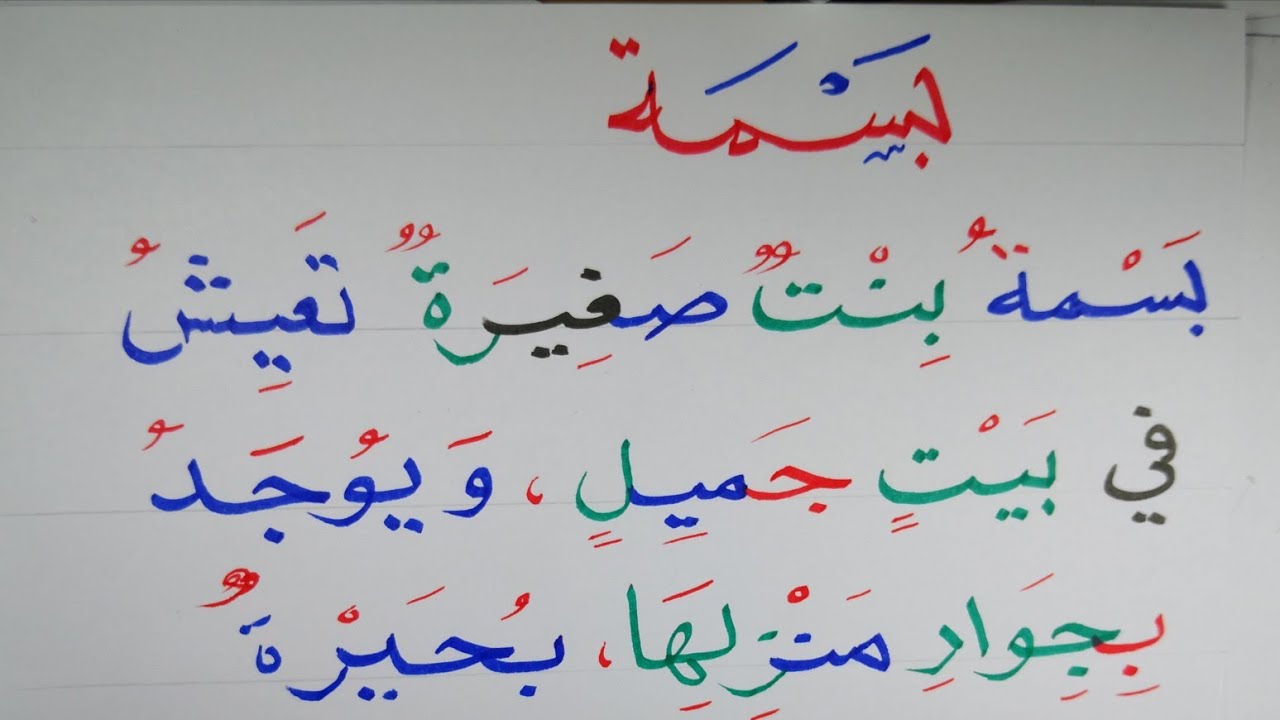 بَسْمَة
بَسْمةُ بِنْتٌ صَغِيَرةٌ تَعِيشُ
في بَيْتٍ جَمِيلٍ، وَيُوجَدُ
بِجِوَارِ مَنْزِلِهَا، بُحَيَرْةٌ